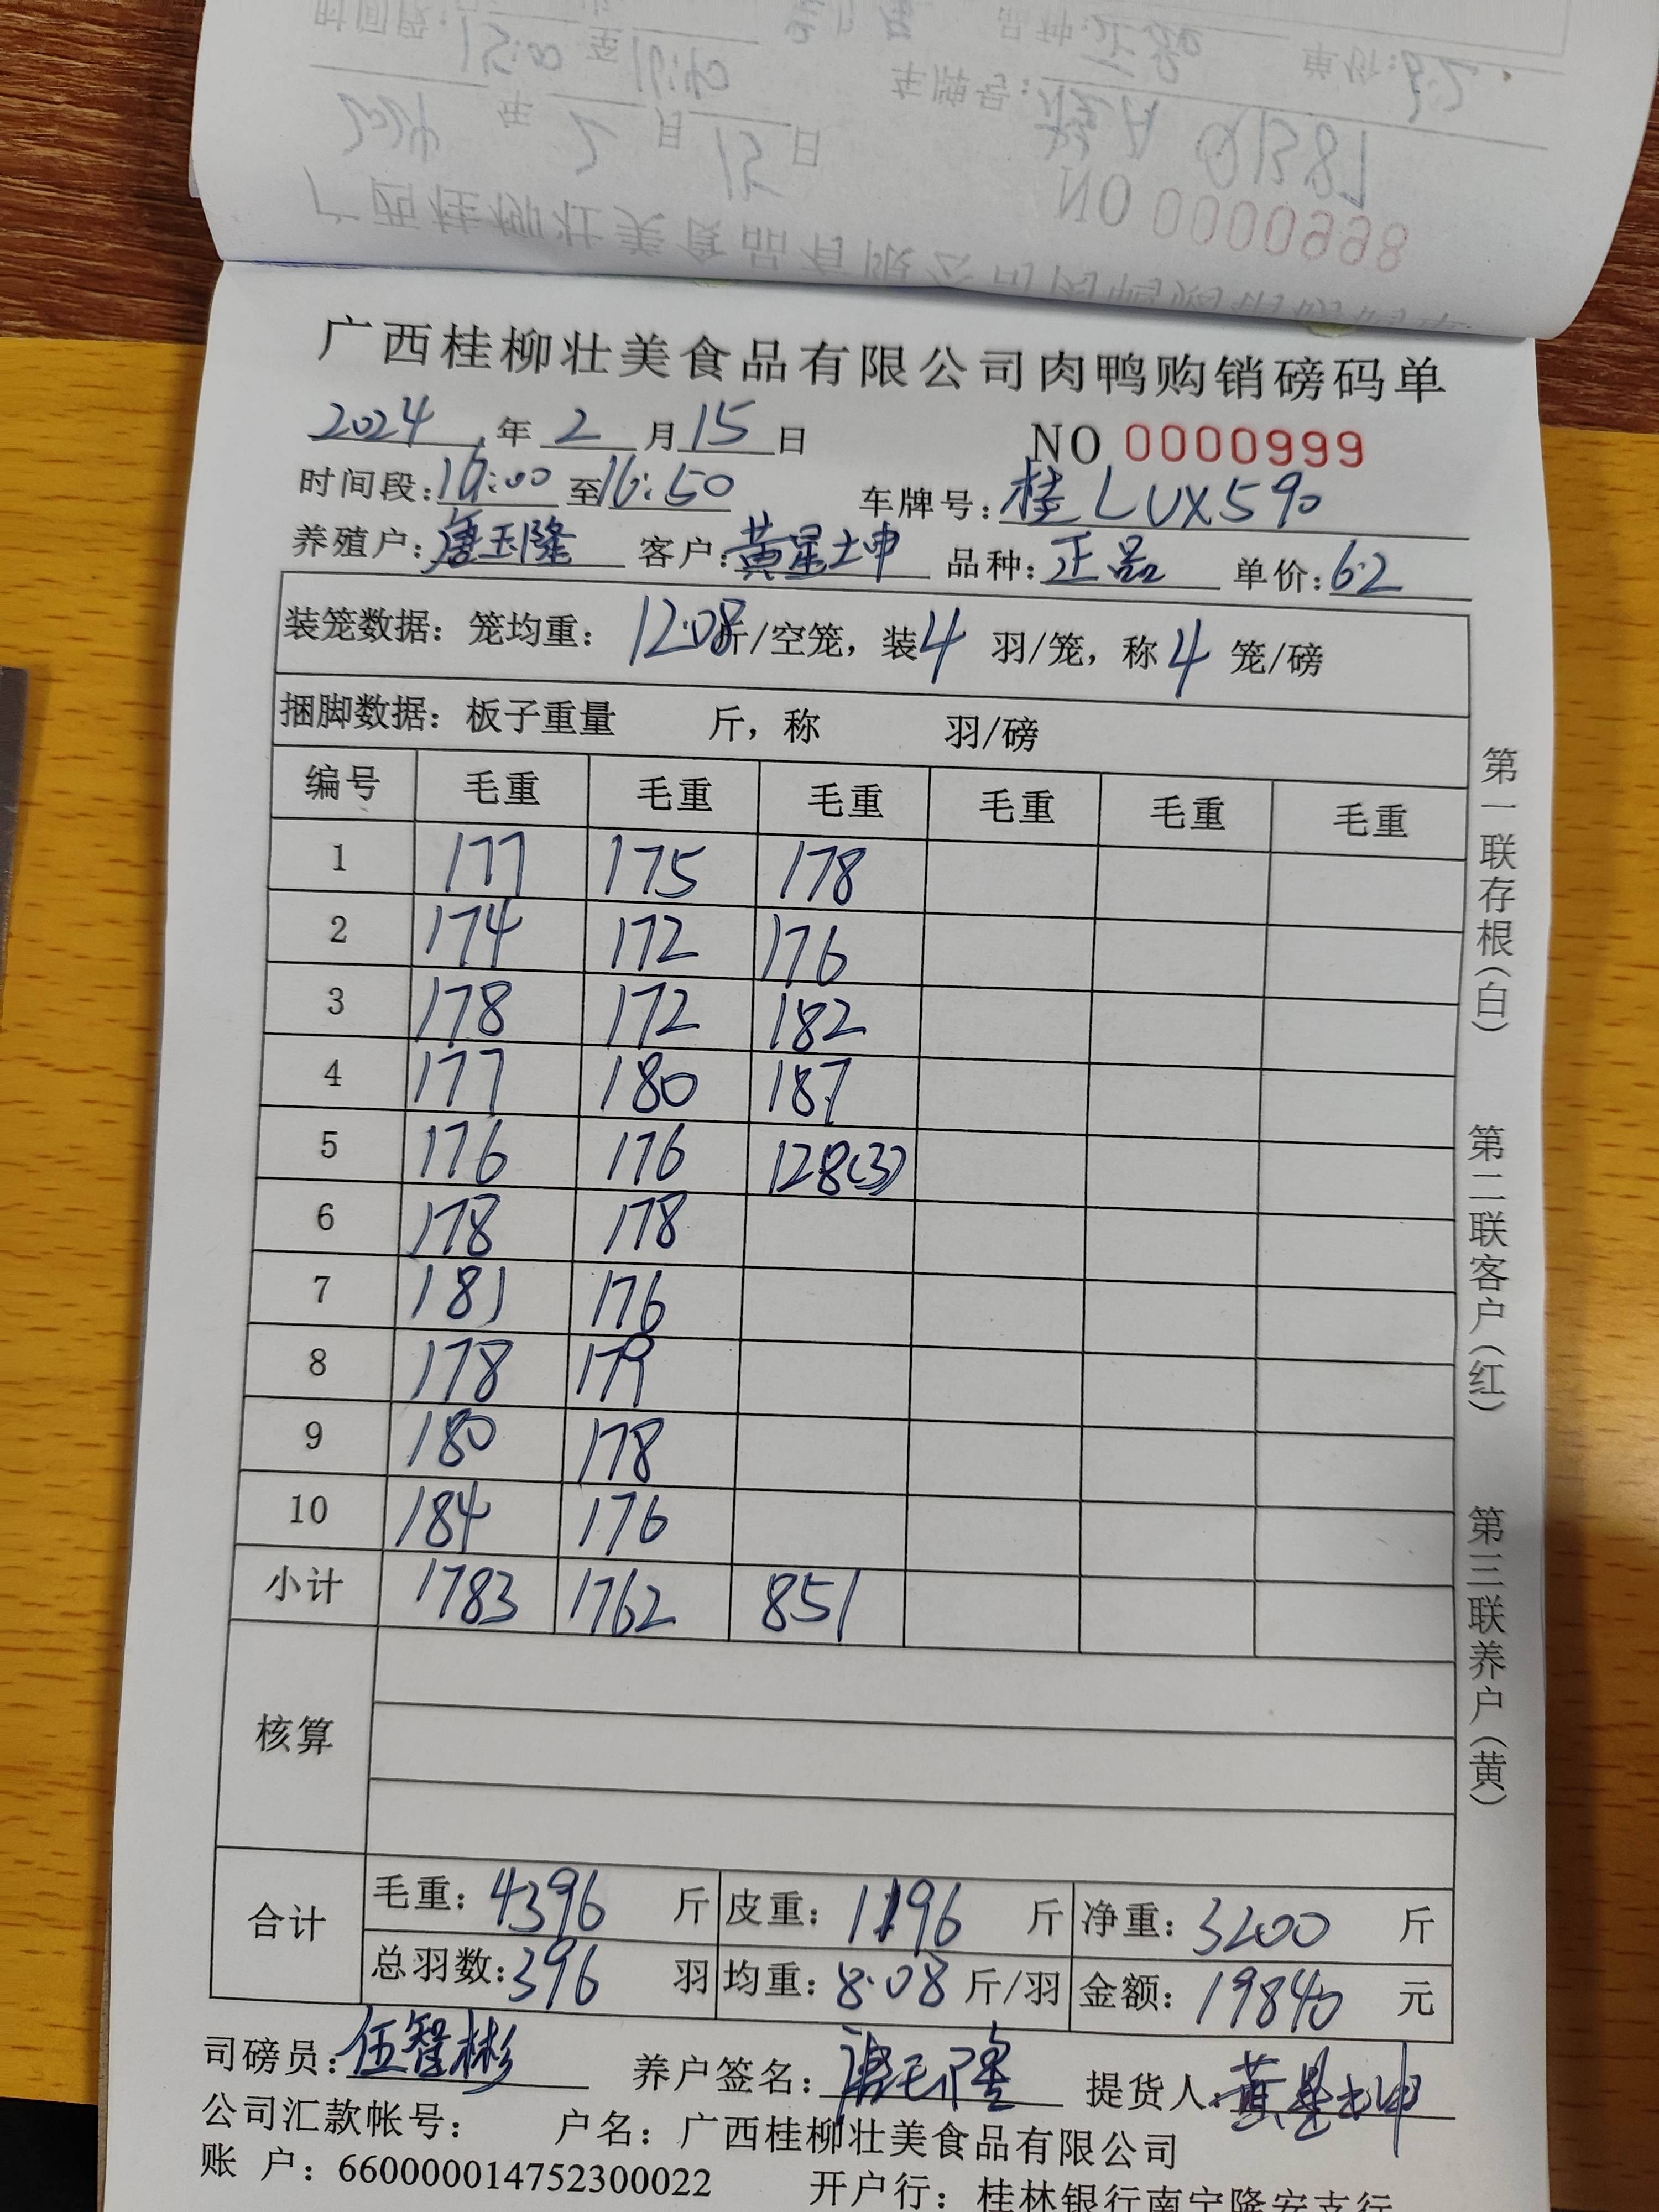 广西桂柳壮美食品有限公司肉鸭购销磅码单
2024 年 2 月 15 日 NO 0000999
时间段: 16:00 至 16:50 车牌号: 桂LUX590
养殖户: 唐玉隆 客户: 黄星坤 品种: 正品 单价: 6.2
装笼数据: 笼均重: 12.08 斤/空笼, 装 4 羽/笼, 称 4 笼/磅
捆脚数据: 板子重量 斤, 称 羽/磅
编号 毛重 毛重 毛重 毛重 毛重 毛重
1 177 175 178
2 174 172 176
3 178 172 182
4 177 180 187
5 176 176 128(3)
6 178 178
7 181 176
8 178 179
9 180 178
10 184 176
小计 1783 1762 851
核算
合计 毛重: 4396 斤 皮重: 1196 斤 净重: 3200 斤
总羽数: 396 羽 均重: 8.08 斤/羽 金额: 19840 元
司磅员: 伍智彬 养户签名: 唐玉隆 提货人: 黄星坤
公司汇款帐号: 户名: 广西桂柳壮美食品有限公司
账 户: 660000014752300022 开户行: 桂林银行南宁隆安支行
第一联存根(白) 第二联客户(红) 第三联养户(黄)